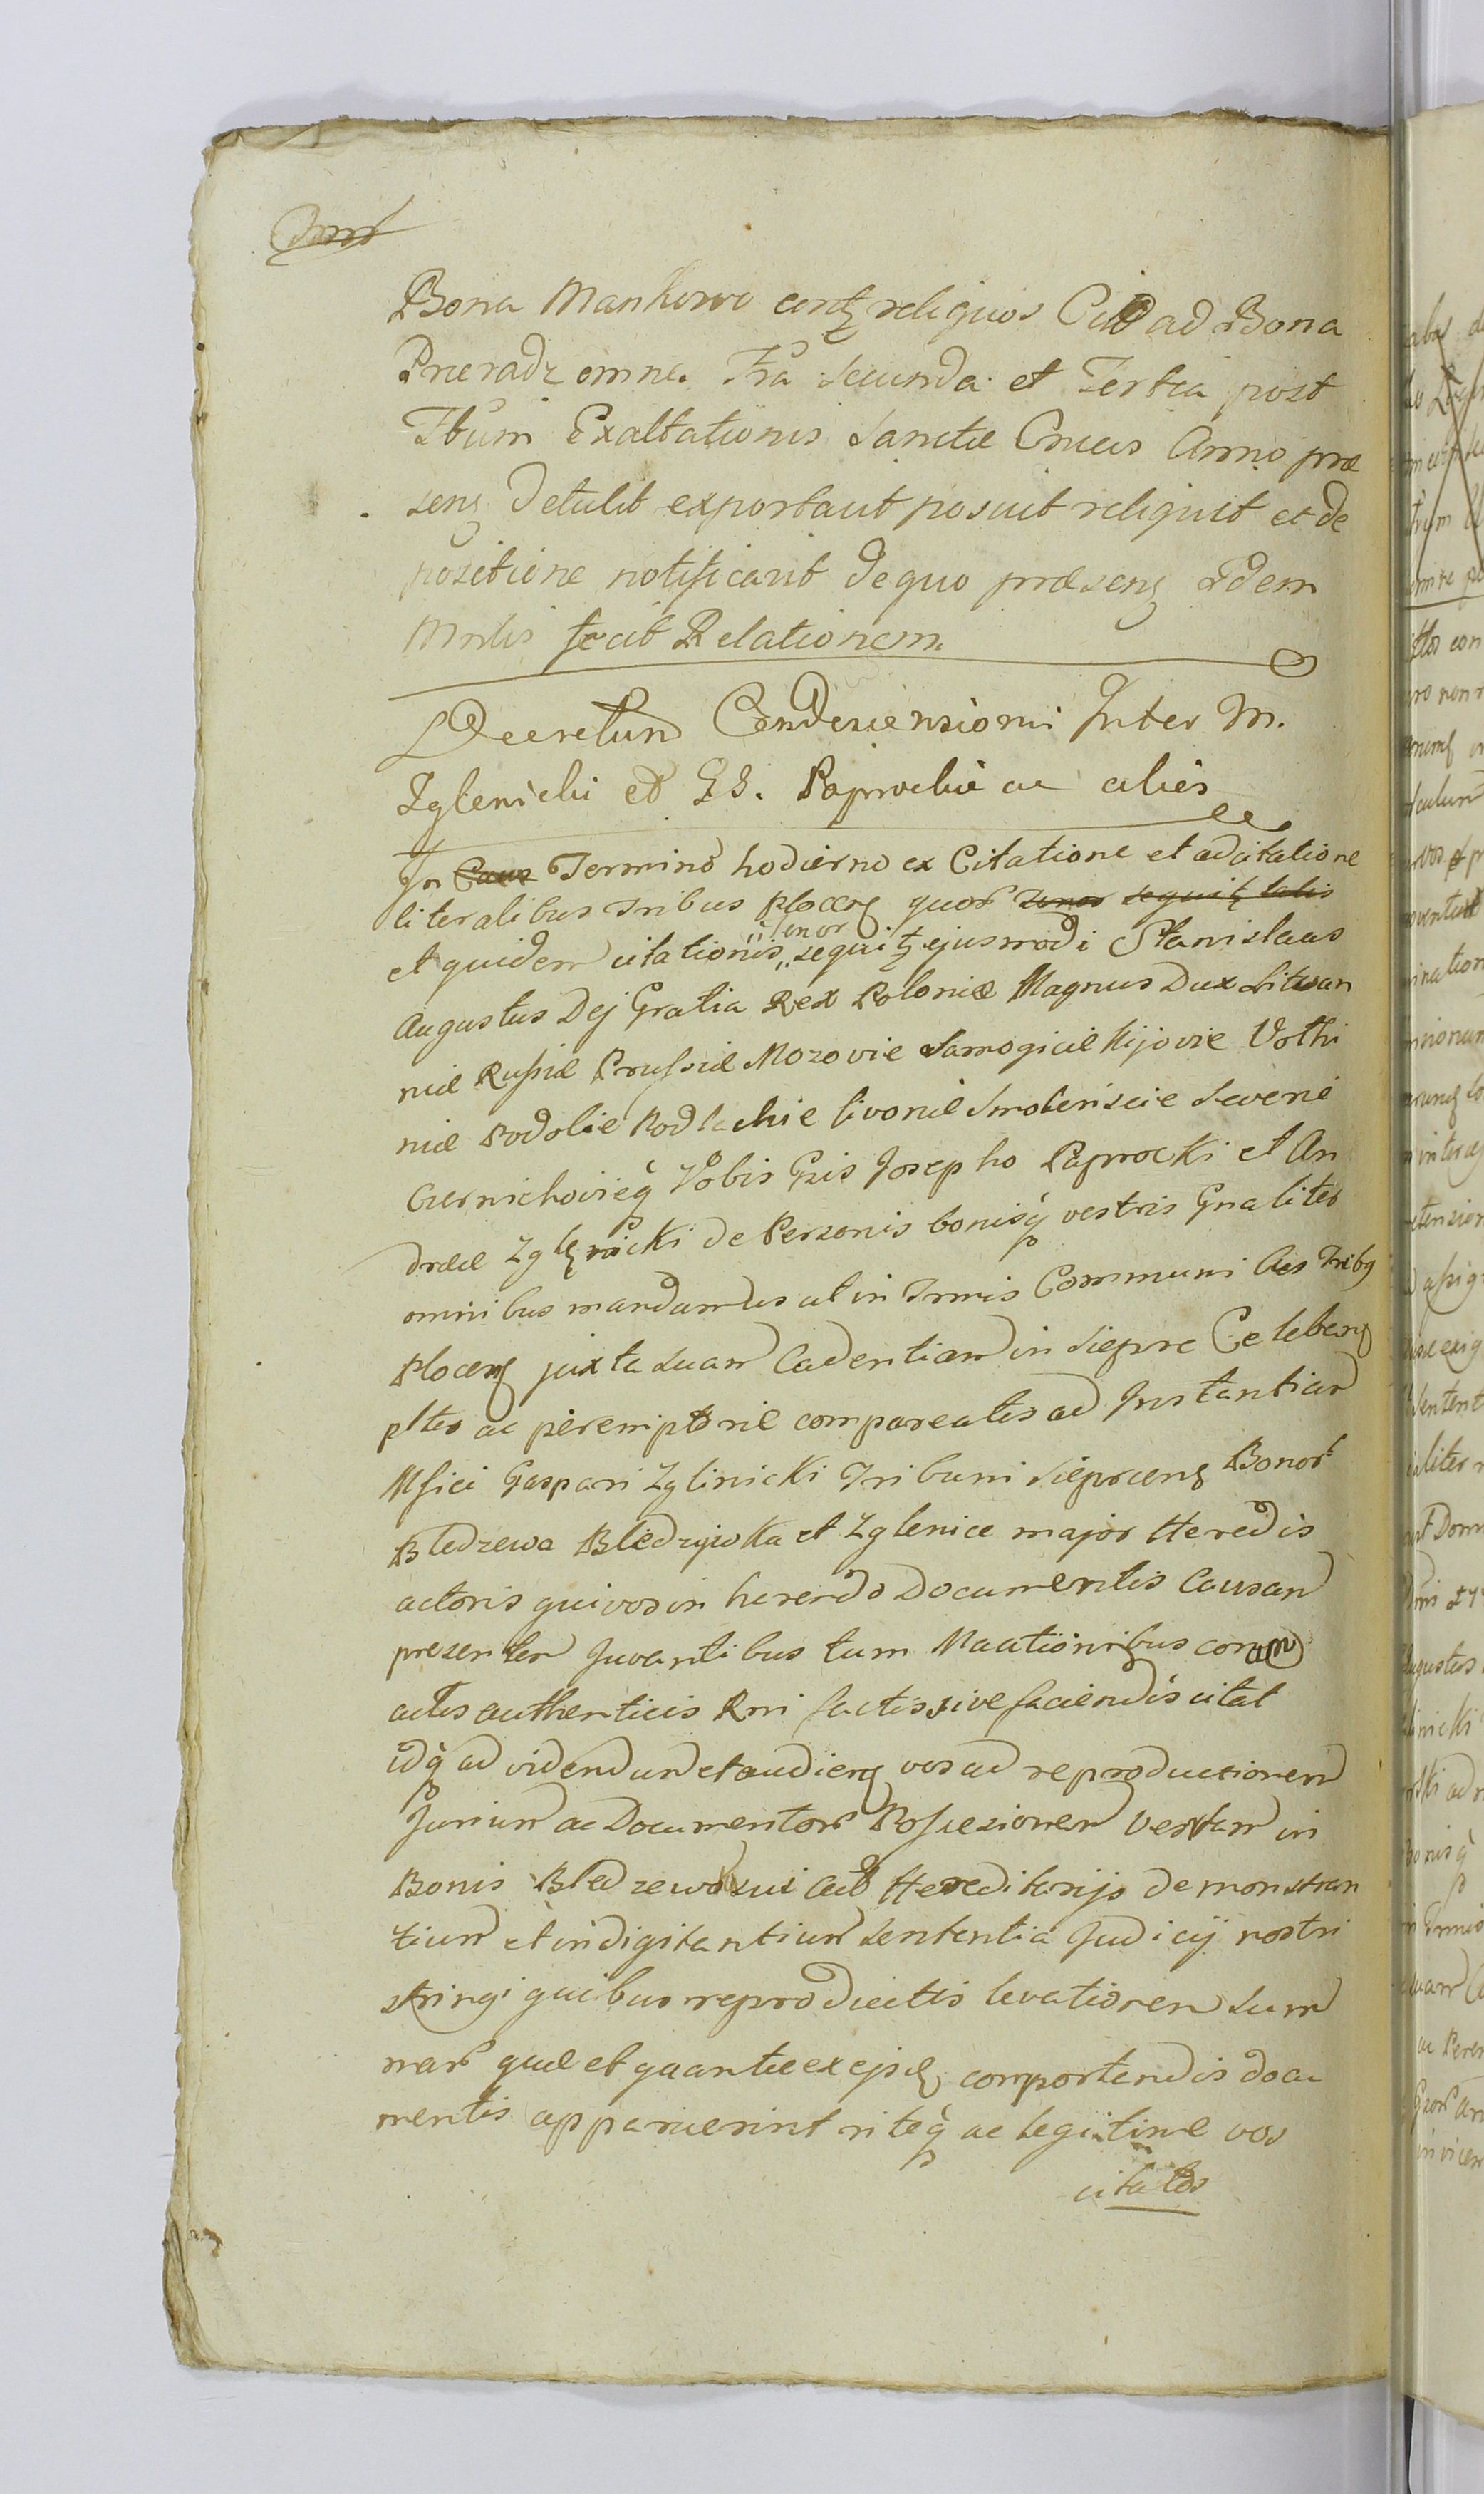 Bona Mankowo contȝ religuos ad Bona
Przeradz omne. Fra Secunda et Tertia post
Ftum Exaltationis Sanctæ Crucis Anno præ
senȝ Detulit exportavit posuit reliquit et de
positione notificavit de quo præsenȝ Idem
Mntlis fecit Relationem.
Decretum Condescensioni Inter M.
Zglenicki et GG. Paprockie ac alies
In Caus Termino hodierno ex Citatione et adcitatione
literalibus Tribus plocenȝ quor Tenor sequitȝ talis
et quidem citationis tenor sequitȝ ejusmodi Stanislaus
Augustus Dej Gratia Rex Poloniæ Magnus Dux Litvan
niæ Russiæ Prussiæ Mozovie Samogiciæ Kijovie Volhi
niæ Podolie Podlachie livoniæ Smolenscie Severie
Czernichovieq Vobis Gsis Josepho Paprocki et An
dreæ Zglęnicki de Personis bonisq vestris Gnaliter
omnibus mandamus ut in Trmis Communi Ces Tribȝ
Plocenȝ juxta suam Cadentiam in Sieprc Celebenȝ
pltes ac peremptorie compareatis ad Instantiam
Mfici Gaspari Zglinicki Tribuni Sieprcenȝ Bonor
Bledzewa Bledzywka et Zglenice major Heredis
actoris qui vos in herendo Documentis Causam
presentem Juvantibus tum Maationibus coram
actis authenticis Rni factis sive faciendis citat
idq ad videndum et audienȝ vos ad reproductionem
Jurium ac Documentor Possesionem Vestram in
Bonis Bledzewo sui Hereditarijs demonstran
tium et indigitantium Sententia Judicij nostri
stringi quibus reproductis levationem Sum
mar quæ et quante ex ejsdȝ comportendis docu
mentis apparuerint riteq ac legitime vos
citatos